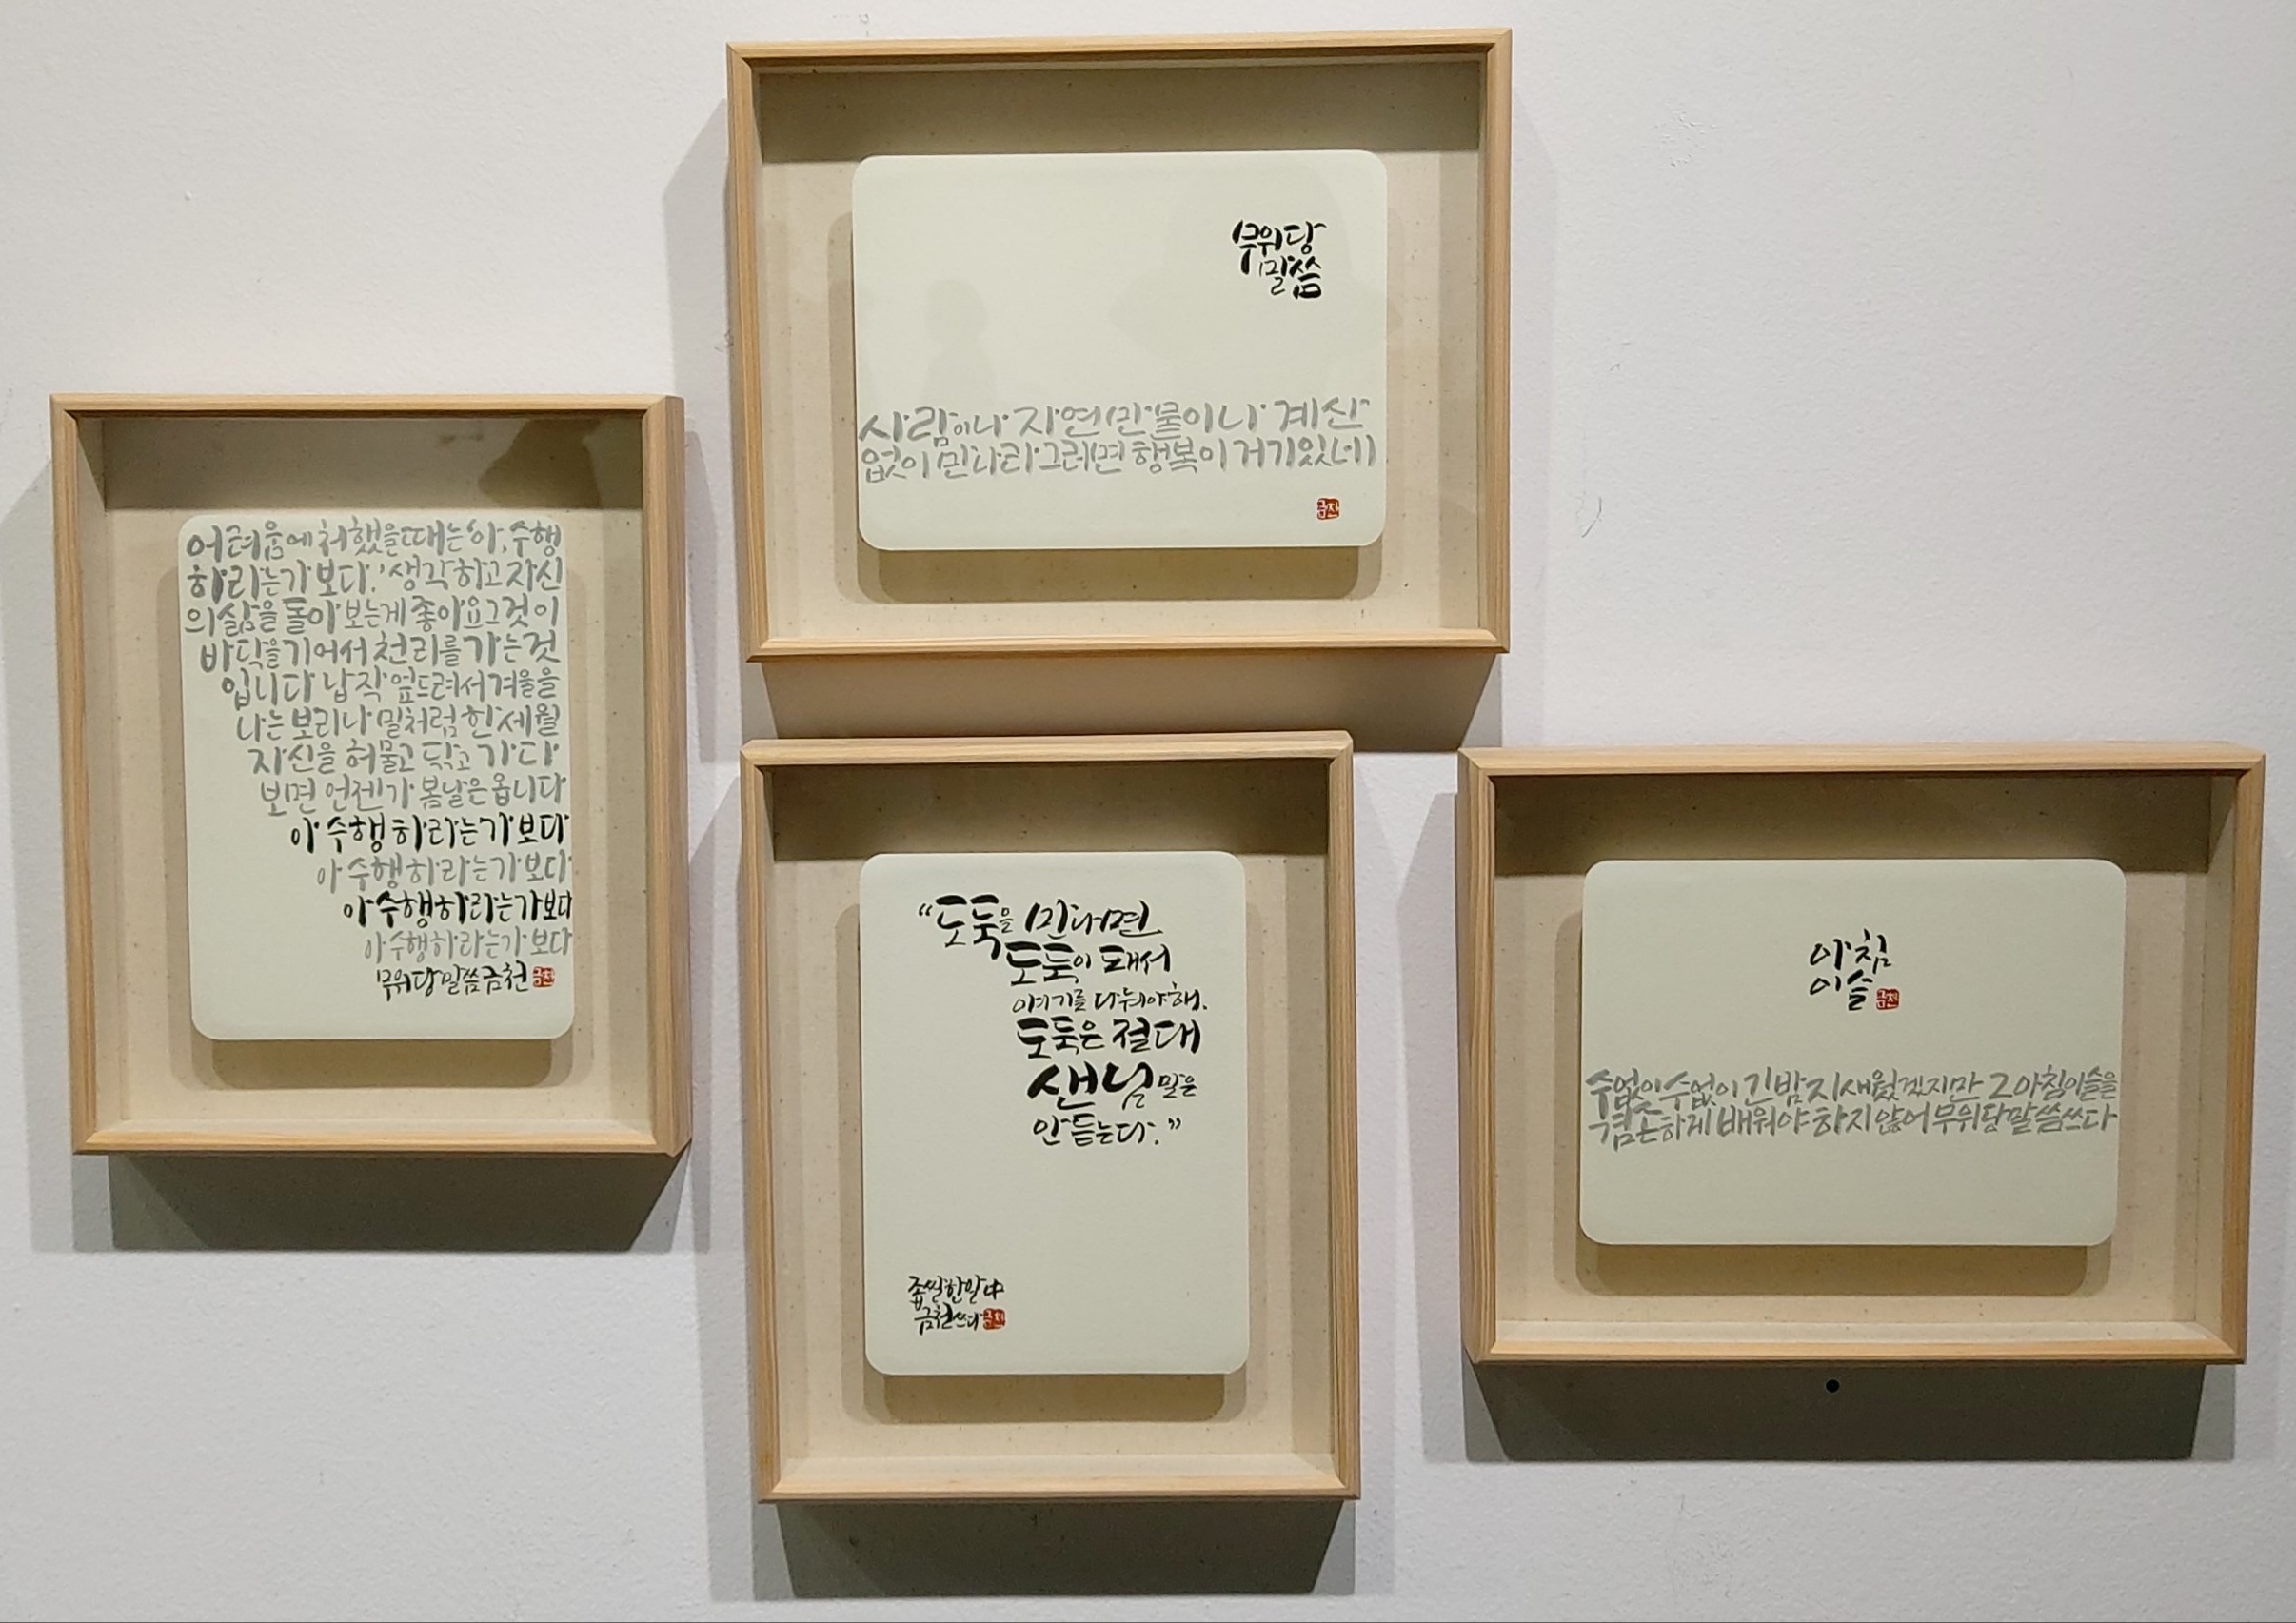 무위당
말씀
사람이나 자연만물이나 계산
없이 만나라 그러면 행복이 거기있네
금천
어려움에 처했을때는 '아, 수행
하라는가 보다.' 생각하고 자신
의 삶을 돌아보는게 좋아요 그것이
바닥을 기어서 천리를 가는 것
입니다 납작 엎드려서 겨울을
나는 보리나 밀처럼 한 세월
자신을 허물고 닦고 가다
보면 언젠가 봄날은 옵니다
아 수행하라는가보다
아 수행하라는가보다
아 수행하라는가보다
아 수행하라는가보다
무위당말씀 금천 금천
"도둑을 만나면
도둑이 돼서
얘기를 나눠야해.
도둑은 절대
샌님 말은
안 듣는다."
좁쌀한알 中
금천쓰다 금천
아침
이슬 금천
수없이 수없이 긴밤 지새웠겠지만 그 아침이슬을
겸손하게 배워야 하지 않어 무위당말씀쓰다